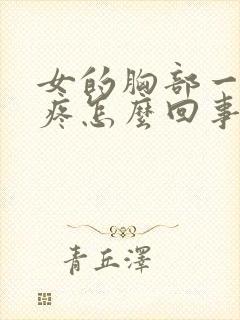 女的胸部一
疼怎麼回事
青丘澤